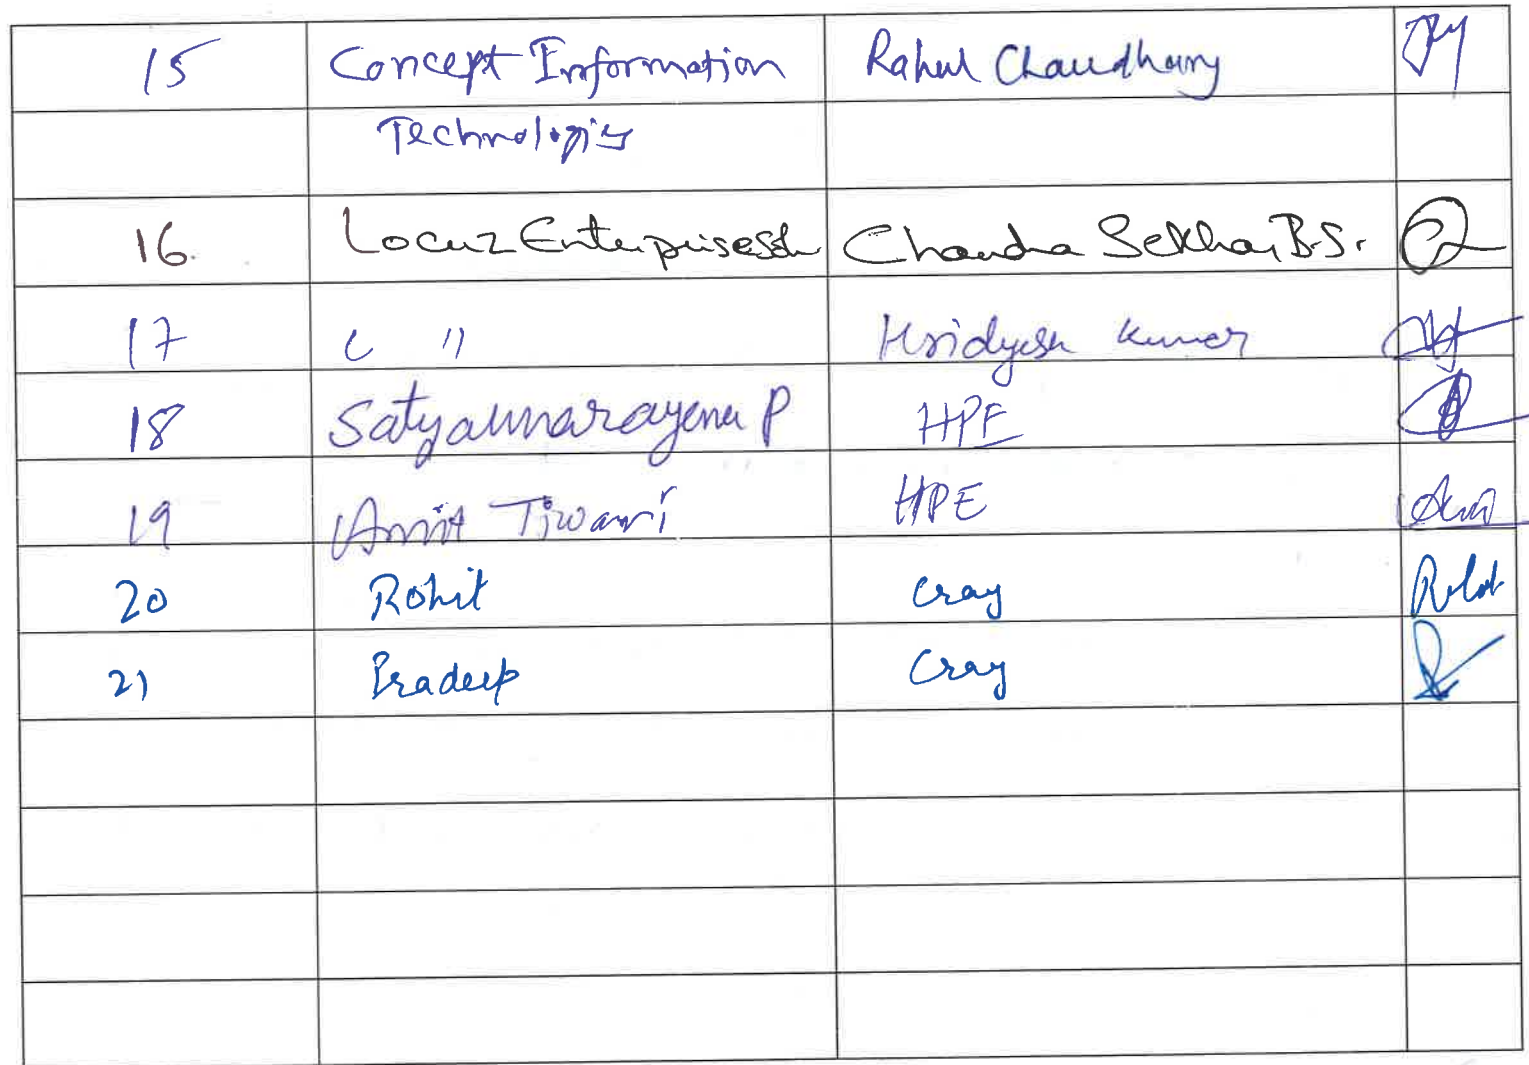 15 Concept Information Rahul Chaudhary
Technologies
16. Locuz Enterprise Sol Chandra Sekhar B.S.
17 " Hridyesh Kumar
18 Satyanarayana P HPE
19 Amit Tiwari HPE
20 Rohit Cray Rohit
21 Pradeep Cray